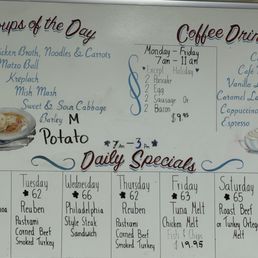 oups of the Day
Chicken Broth, Noodles & Carrots
Matzo Ball
Kreplach
Mish Mash
Sweet & Sour Cabbage
Barley M
Potato
Monday - Friday
7am - 11am
*Except Holiday*
2 Pancake
2 Egg
2 Sausage Or
2 Bacon
$9.95
Coffee Drin
Co
Caf
Vanilla
Caramel La
Cappuccino
Espresso
7 Am - 3 Pm
Daily Specials
Tuesday
★ 62
Reuben
Pastrami
Corned Beef
Smoked Turkey
Wednesday
★ 66
Philadelphia
Style Steak
Sandwich
Thursday
★ 62
Reuben
Pastrami
Corned Beef
Smoked Turkey
Friday
★ 63
Tuna Melt
Chicken Melt
Fish & Chips
$19.95
Saturday
★ 65
Roast Beef
or Turkey